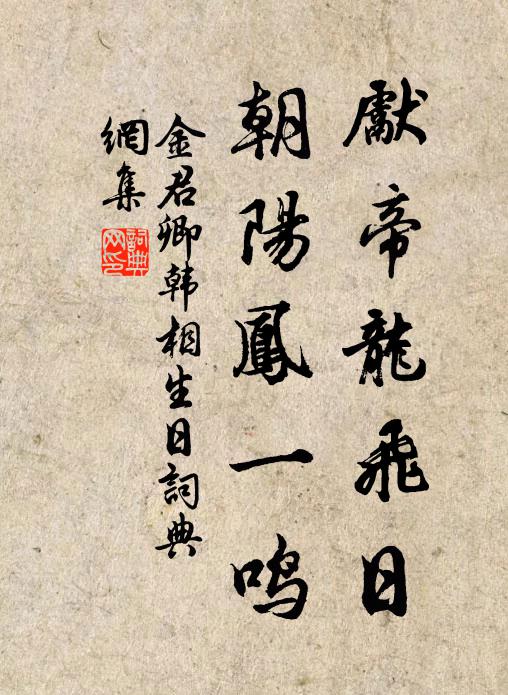 獻帝龍飛日
朝陽鳳一鸣
金君卿韩相生日詞典
網集
詞典
网印